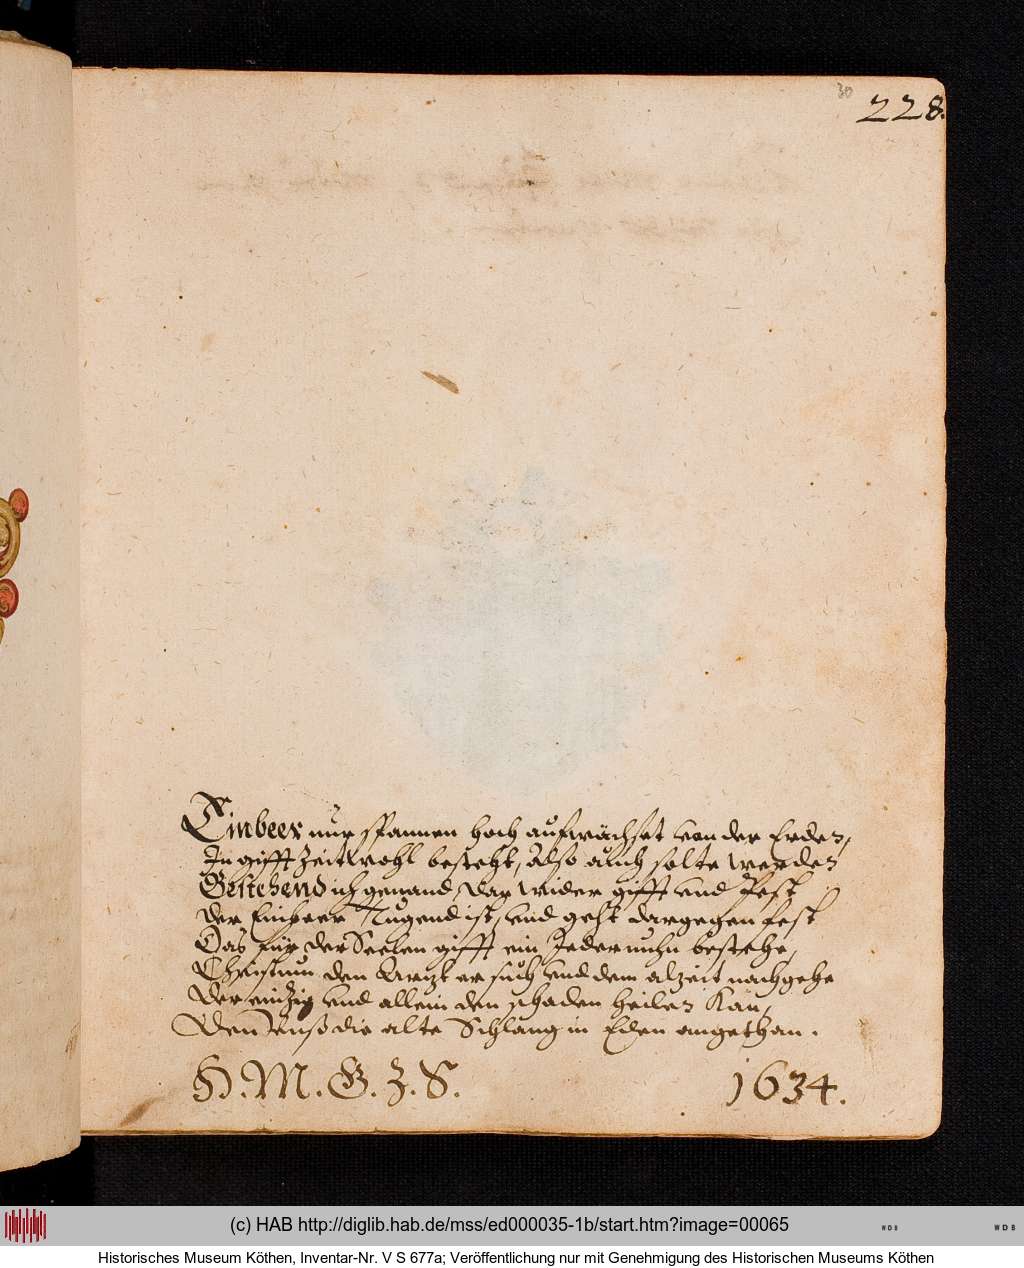 30
228.
Einbeer nur spannen hoch aufwächset von der Erden,
In gifft Zeit wohl besteht, Also auch solte werden
Bestehend ich genand, dar wider gifft und Pest
der Einbeer Tugend ist, und geht dargegen fest
Das für der Seelen gifft ein Jeder nuhn bestehe,
Christum den Artzt er such und dem alzeit nachgehe
Der eintzig und allein den schaden heilen Kan,
Den uns die alte Schlang in Eden angethan.
H. M. G. Z. S. 1634.
(c) HAB http://diglib.hab.de/mss/ed000035-1b/start.htm?image=00065
WDB
WDB
Historisches Museum Köthen, Inventar-Nr. V S 677a; Veröffentlichung nur mit Genehmigung des Historischen Museums Köthen